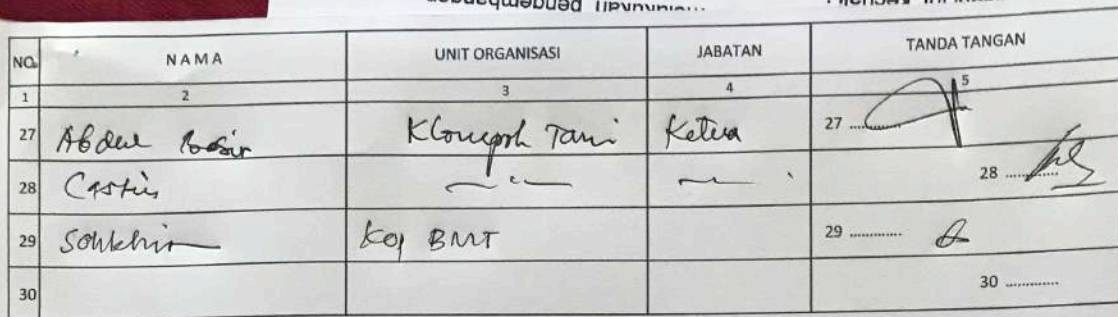 NO. NAMA UNIT ORGANISASI JABATAN TANDA TANGAN
1 2 3 4 5
27 Abdul Basir Tani Ketua 27 ............
28 28 ............
29 Solikhin Kop BMT 29 ............
30 30 ............